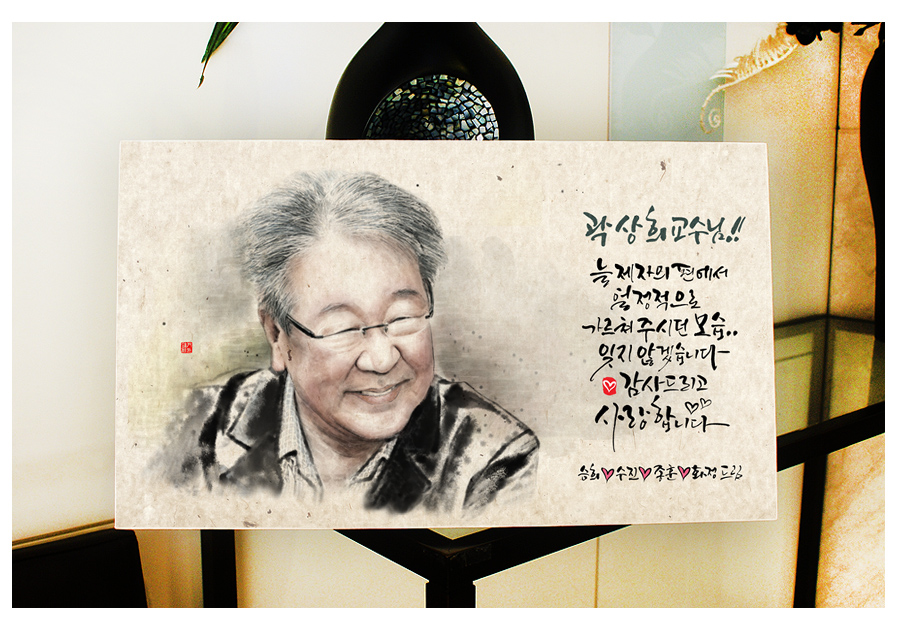 곽상희교수님!!
늘 제자의 편에서
열정적으로
가르쳐 주시던 모습..
잊지 않겠습니다
감사드리고
사랑합니다
승희♥수진♥종훈♥화정 드림